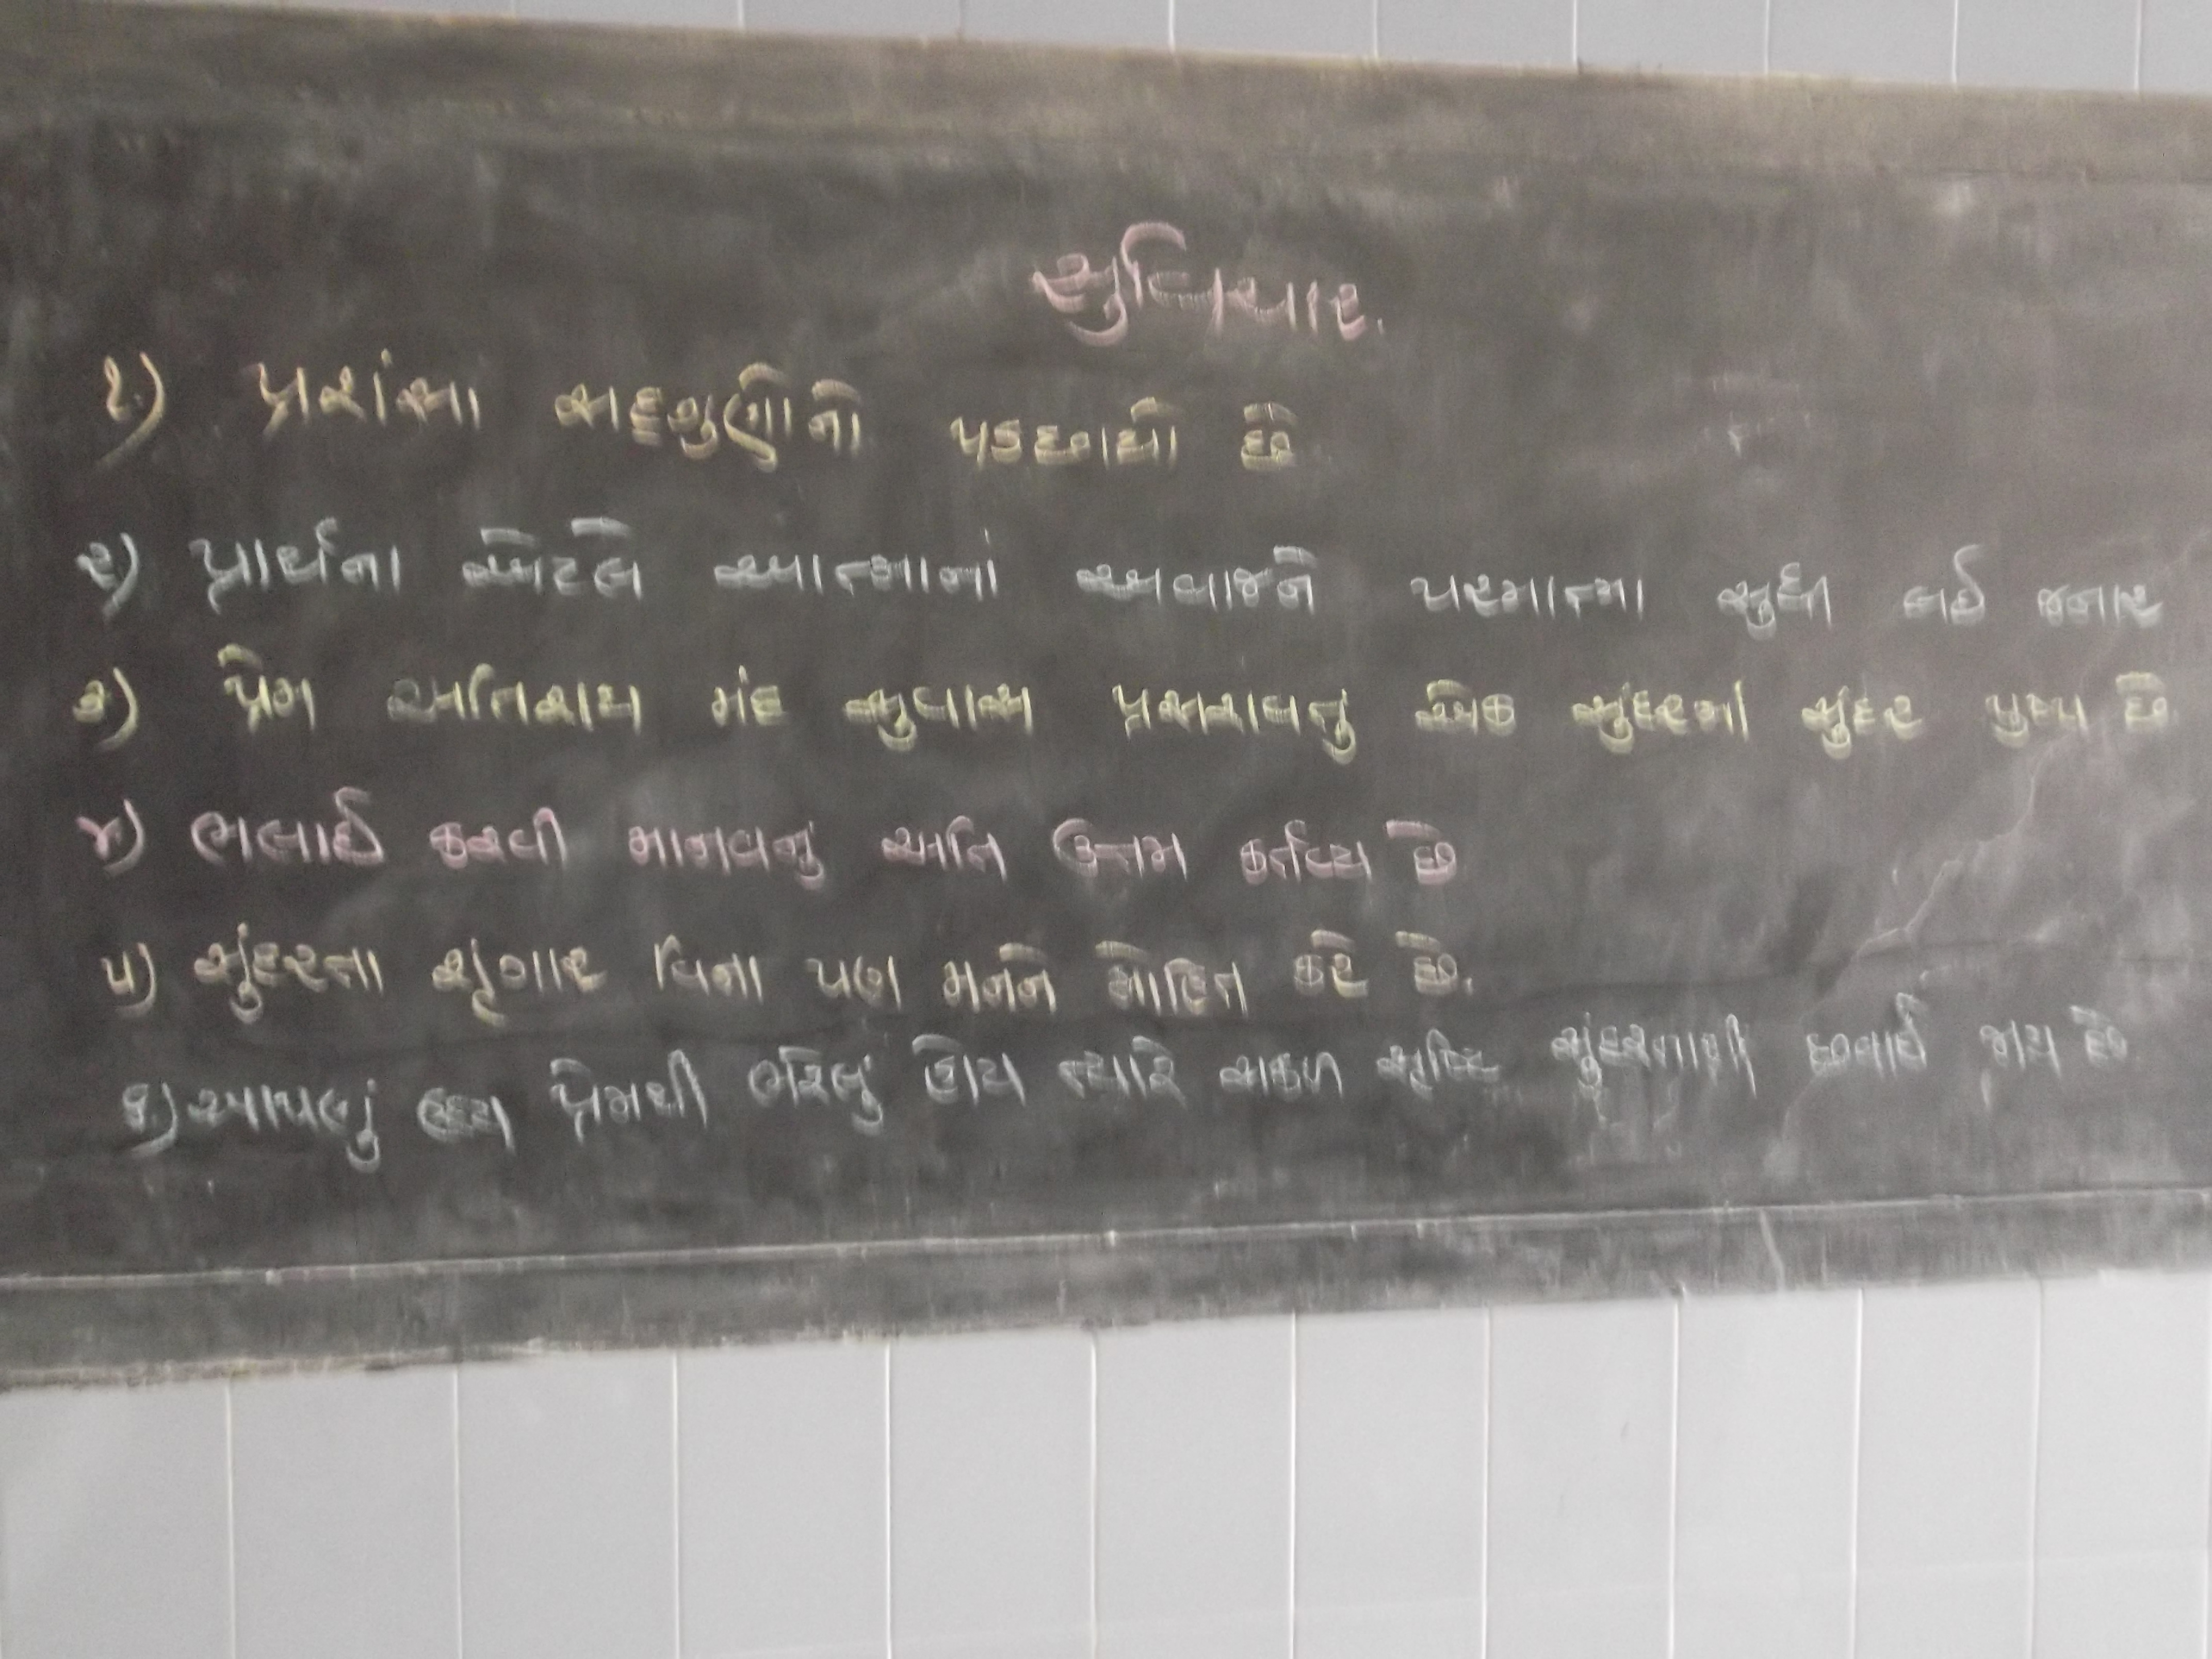 સુવિચાર.
૧) પ્રશંસા સદ્દગુણોનો પડછાયો છે
૨) પ્રાર્થના એટલે આત્માનાં અવાજને પરમાત્મા સુધી લઈ જનાર
૩) પ્રેમ અતિશય મંદ સુવાસ પ્રસરાવનું એક સુંદરમાં સુંદર પુષ્પ છે.
૪) ભલાઈ કરવી માનવનું અતિ ઉત્તમ કર્તવ્ય છે
૫) સુંદરતા શૃંગાર વિના પણ મનને મોહિત કરે છે.
૬) આપણું હૃદય પ્રેમથી ભરેલું હોય ત્યારે સકળ સૃષ્ટિ સુંદરતાથી છવાઈ જાય છે